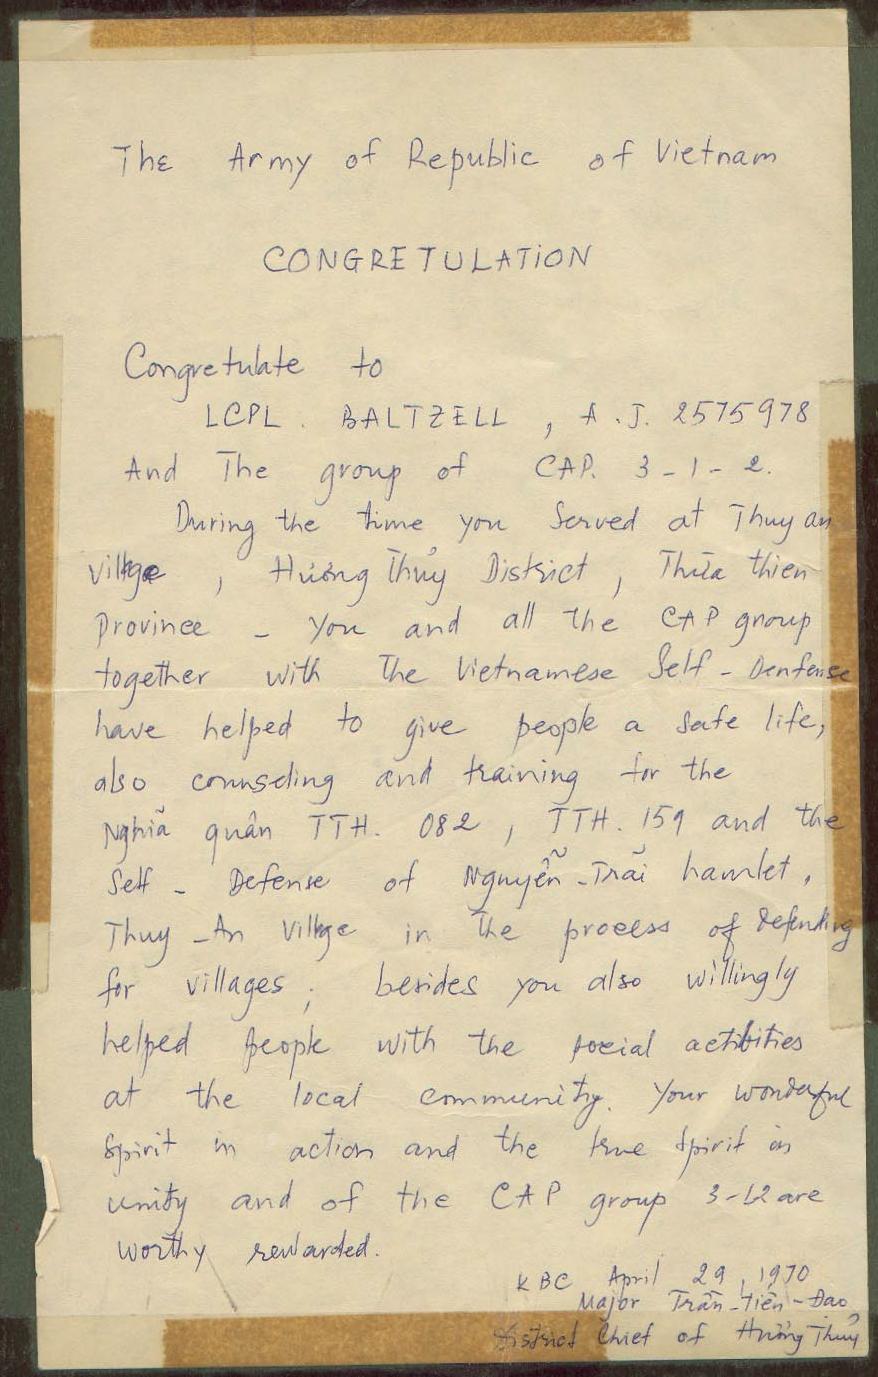 The Army of Republic of Vietnam
CONGRETULATION
Congretulate to
LCPL. BALTZELL, A.J. 2575978
And The group of CAP. 3-1-2.
During the time you Served at Thuy an
Village, Hương Thủy District, Thừa thien
Province - You and all the CAP group
together with The Vietnamese Self-Denfense
have helped to give people a safe life,
also counseling and training for the
Nghiã quân TTH. 082, TTH. 159 and the
Self-Defense of Nguyễn-Trãi hamlet,
Thuy-An Village in The process of defending
for villages; besides you also willingly
helped people with the social actibities
at the local community. Your wonderful
Spirit in action and the true Spirit in
unity and of the CAP group 3-1-2 are
worthy rewarded.
KBC April 29, 1970
Major Trần-tiến-Đạo
District Chief of Hương Thủy